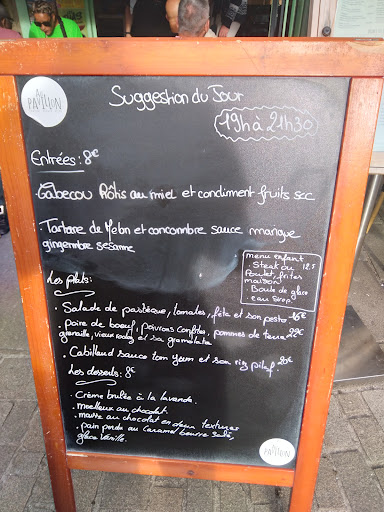 AU
PAVILLON
Suggestion du Jour
19h à 21h30
Entrées: 8€
Cabecou Rôtis au miel et condiment fruits sec
. Tartare de Melon et concombre sauce mangue
gingembre sesame
menu enfant
. Steak ou 12.5
Poulet, frites
maison
. Boule de glace
. eau sirop
Les plats:
. Salade de pastèque, tomates, féta et son pesto 16€
. Poire de boeuf, poivrons confits, pommes de terre 22€
grenaille, vieux rodez et sa gremolata
. Cabillaud sauce tom yum et son riz pilaf 20€
Les desserts: 8€
. Crème brulée à la lavande.
. moelleux au chocolat.
. marbré au chocolat en deux textures
. pain perdu au caramel beurre salé,
glace vanille.
AU
PAVILLON